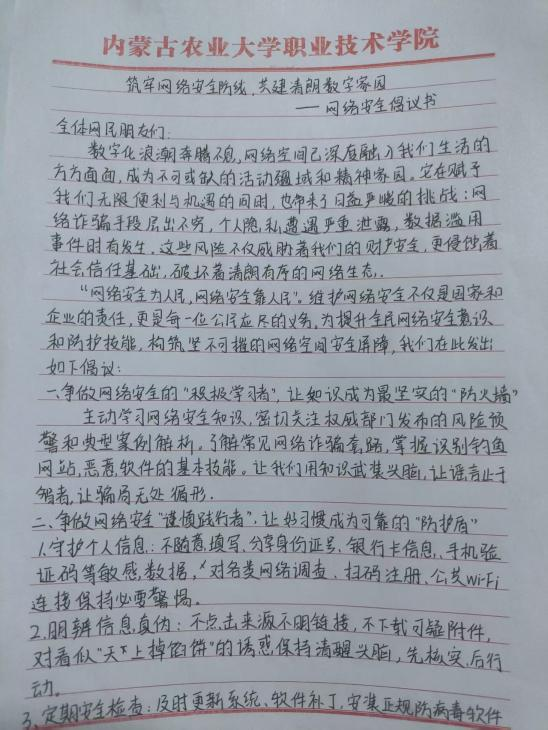 内蒙古农业大学职业技术学院
筑牢网络安全防线,共建清朗数字家园
——网络安全倡议书
全体网民朋友们:
数字化浪潮奔腾不息,网络空间已深度融入我们生活的
方方面面,成为不可或缺的活动疆域和精神家园。它在赋予
我们无限便利与机遇的同时,也带来了日益严峻的挑战:网
络诈骗手段层出不穷,个人隐私遭遇严重泄露,数据滥用
事件时有发生。这些风险不仅威胁着我们的财产安全,更侵蚀着
社会信任基础,破坏着清朗有序的网络生态。
“网络安全为人民,网络安全靠人民”。维护网络安全不仅是国家和
企业的责任,更是每一位公民应尽的义务,为提升全民网络安全意识
和防护技能,构筑坚不可摧的网络空间安全屏障,我们在此发出
如下倡议:
一、争做网络安全的“积极学习者”,让知识成为最坚实的“防火墙”
主动学习网络安全知识,密切关注权威部门发布的风险预
警和典型案例解析。了解常见网络诈骗套路,掌握识别钓鱼
网站,恶意软件的基本技能。让我们用知识武装头脑,让谣言止于
智者,让骗局无处循形.
二、争做网络安全“谨慎践行者”.让好习惯成为可靠的“防护盾”
1.守护个人信息:不随意填写、分享身份证号、银行卡信息、手机验
证码等敏感数据,对各类网络调查、扫码注册、公共Wi-Fi
连接保持必要警惕。
2.明辨信息真伪:不点击来源不明链接,不下载可疑附件,
对看似“天上掉馅饼”的诱惑保持清醒头脑,先核实,后行
动。
3.定期安全检查:及时更新系统、软件补丁,安装正规防病毒软件